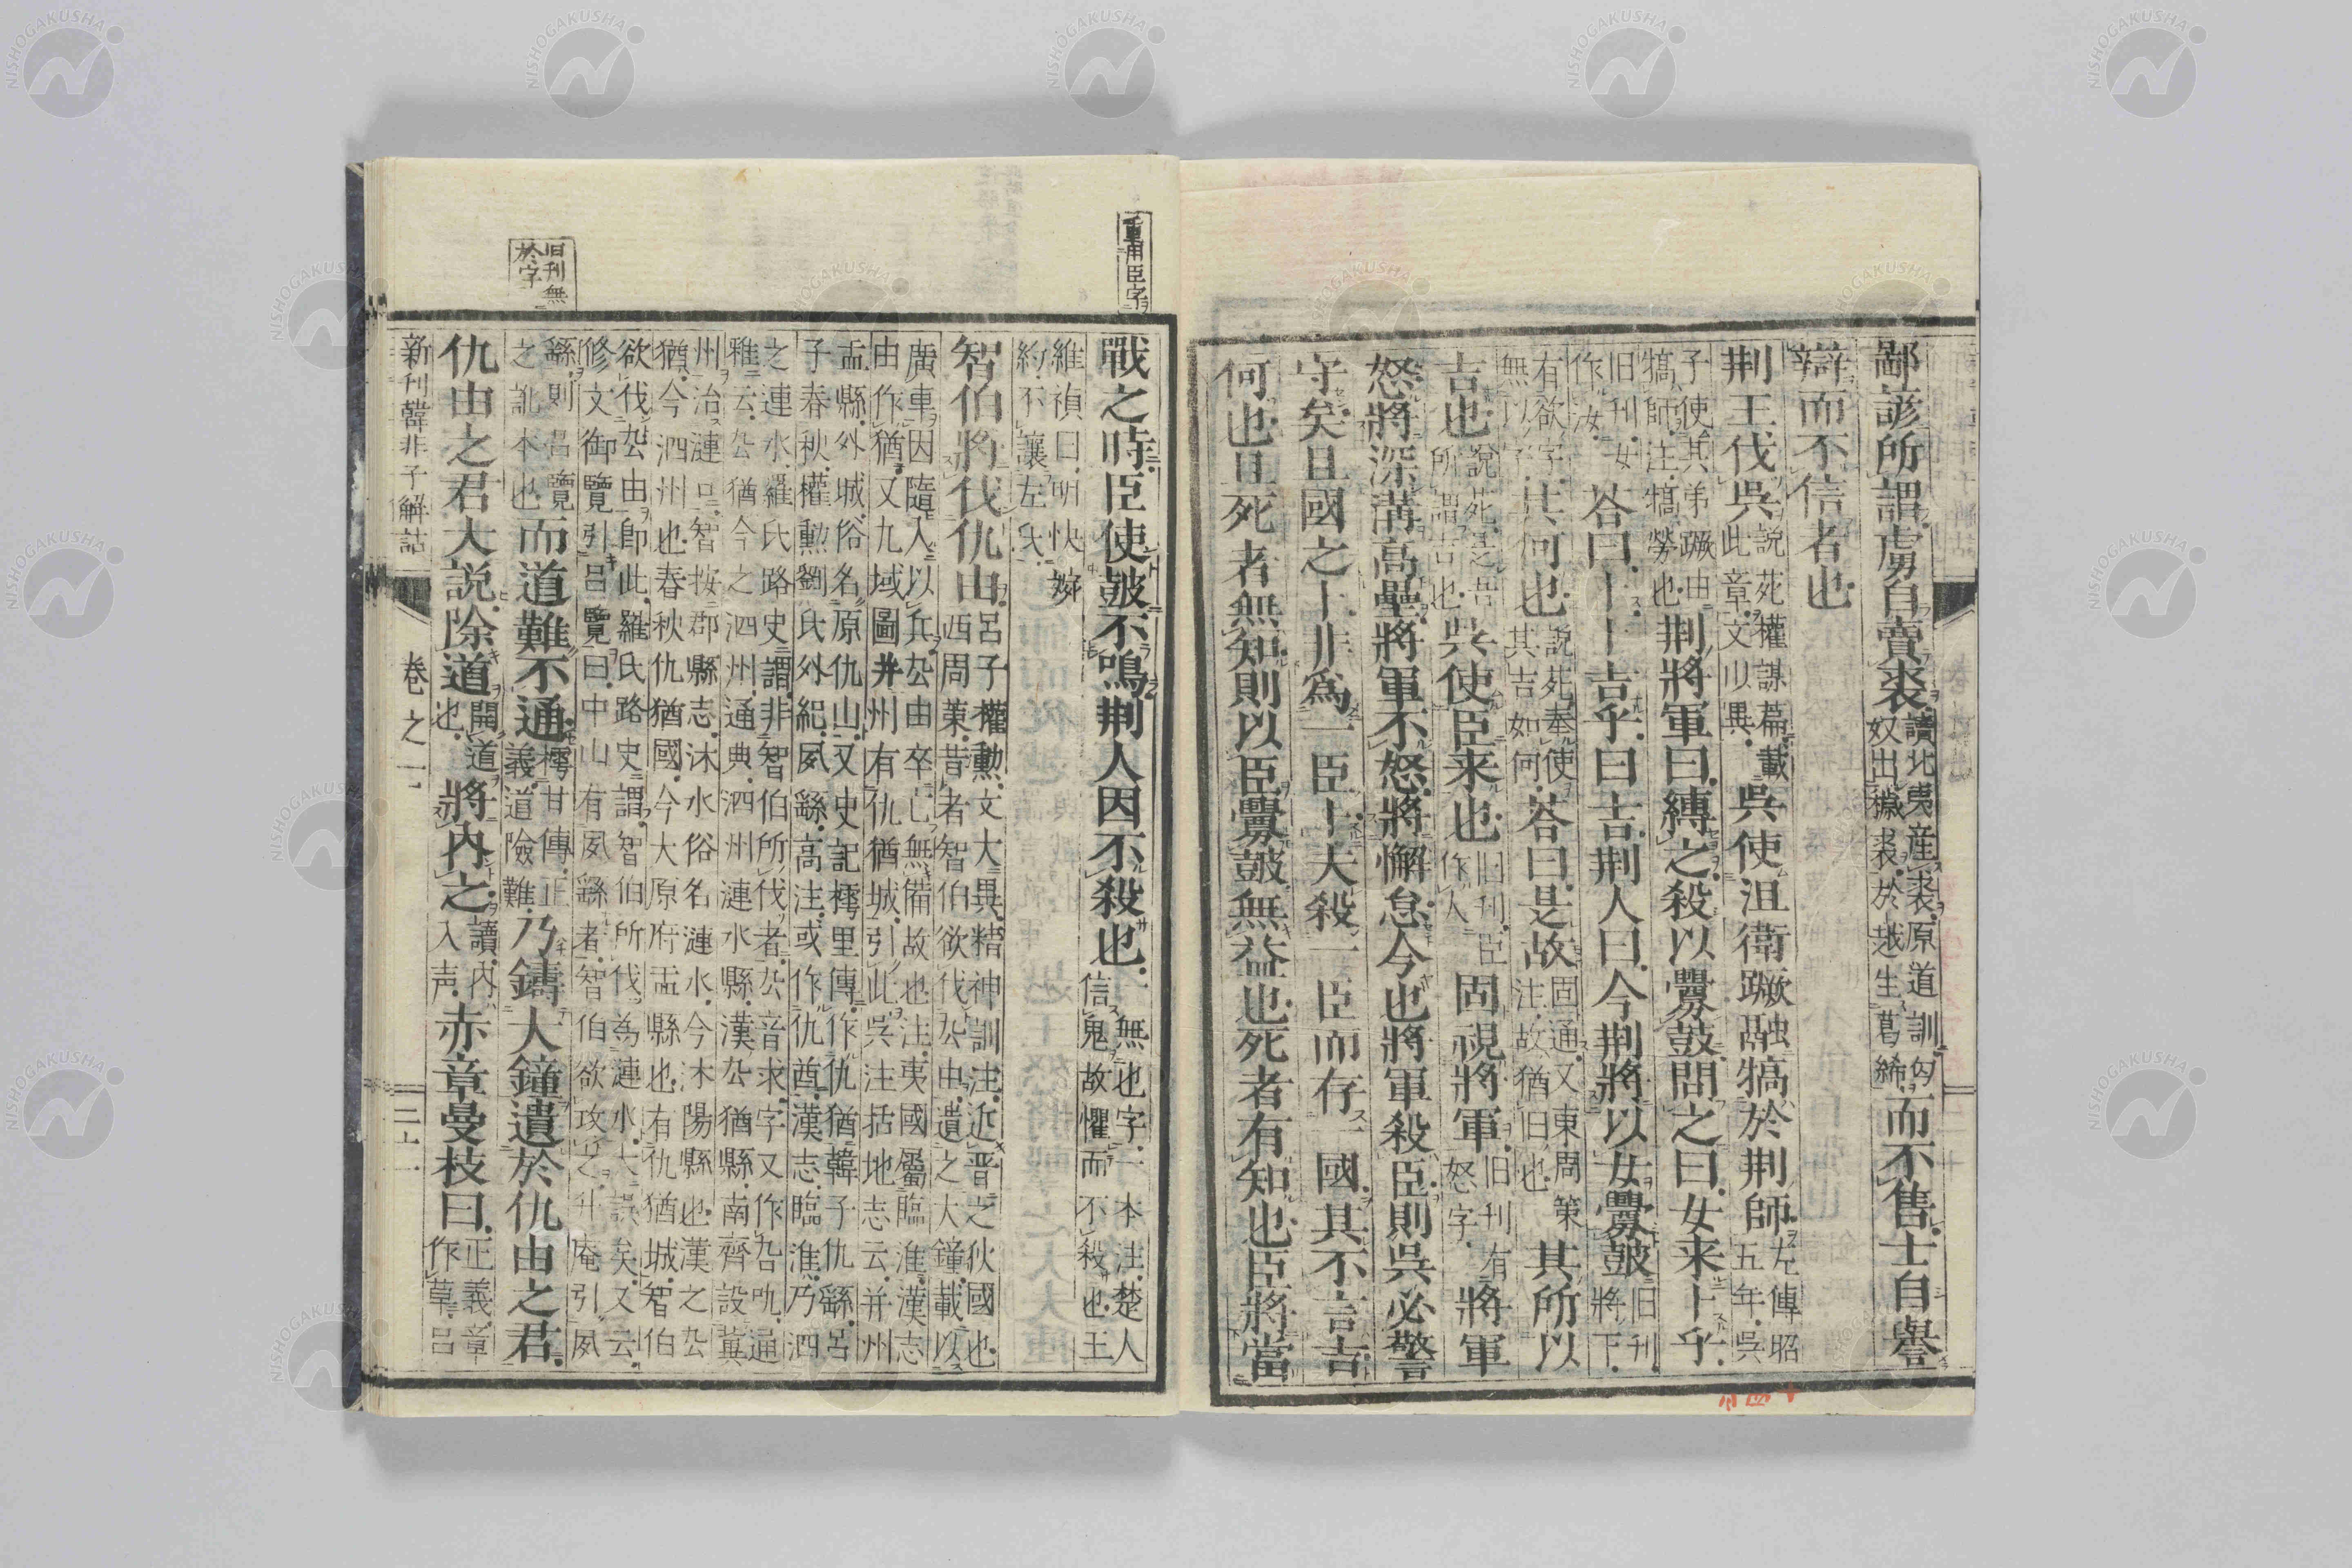 鄙諺所謂虜自賣裘讀北夷産裘原道訓匈奴出穢裘於越生葛絺而不售士自譽
辯而不信者也
荆王伐呉説苑權謀篇載此章文以異呉使沮衛蹶融犒於荆師左傳昭五年呉
子使其弟蹶由犒師注犒勞也荆將軍曰縛之殺以釁鼓問之曰女来卜乎
旧刊女作汝荅曰卜卜吉乎曰吉荆人曰今荆將以女釁鼓旧刊將下
有欲字無以字其何也説苑奉使其吉如何荅曰是故固通又東周策注故猶旧也其所以
吉也説苑是吾所謂吉也呉使臣来也旧刊臣作人固視將軍旧刊有怒字將軍
怒將深溝高壘將軍不怒將懈怠今也將軍殺臣則呉必警
守矣且國之卜非爲一臣卜夫殺一臣而存一國其不言吉
何也且死者無知則以臣釁鼓無益也死者有知也臣將當
重用臣字
戰之時臣使鼓不鳴荆人因不殺也無也字一本注楚人信鬼故懼而不殺也王
維禎曰明快婉約不讓左氏
智伯將伐仇由呂子權勳文大異精神訓注近晋之狄國也西周策昔者智伯欲伐厹由遺之大鐘載以
廣車因隨入以兵厹由卒亡無備故也注夷國屬臨淮漢志由作猶又九域圖并州有仇猶城引此呉注括地志云并州
盂縣外城俗名原仇山又史記樗里傳作仇猶韓子仇繇呂子春秋權勳劉氏外紀夙繇高注或作仇酋漢志臨淮乃泗
之連水羅氏路史謂非智伯所伐者厹音求字又作叴吮通雅云厹猶今之泗州通典泗州漣水縣漢厹猶縣南齊設冀
州治漣口智按郡縣志沐水俗名漣水今沐陽縣也漢之厹猶今泗州也春秋仇猶國今大原府盂縣也有仇猶城智伯
欲伐厹由即此羅氏路史謂智伯所伐為漣水大誤矣又云修文御覽引呂覽曰中山有夙繇者智伯欲攻之升庵引夙
繇則呂覽之訛本也而道難不通樗甘傳正義道險難乃鑄大鐘遺於仇由之君
旧刊無於字
仇由之君大説除道開道也將内之讀内入声赤章曼枝曰正義章作草呂
新刊韓非子解詁 卷之一 三十一